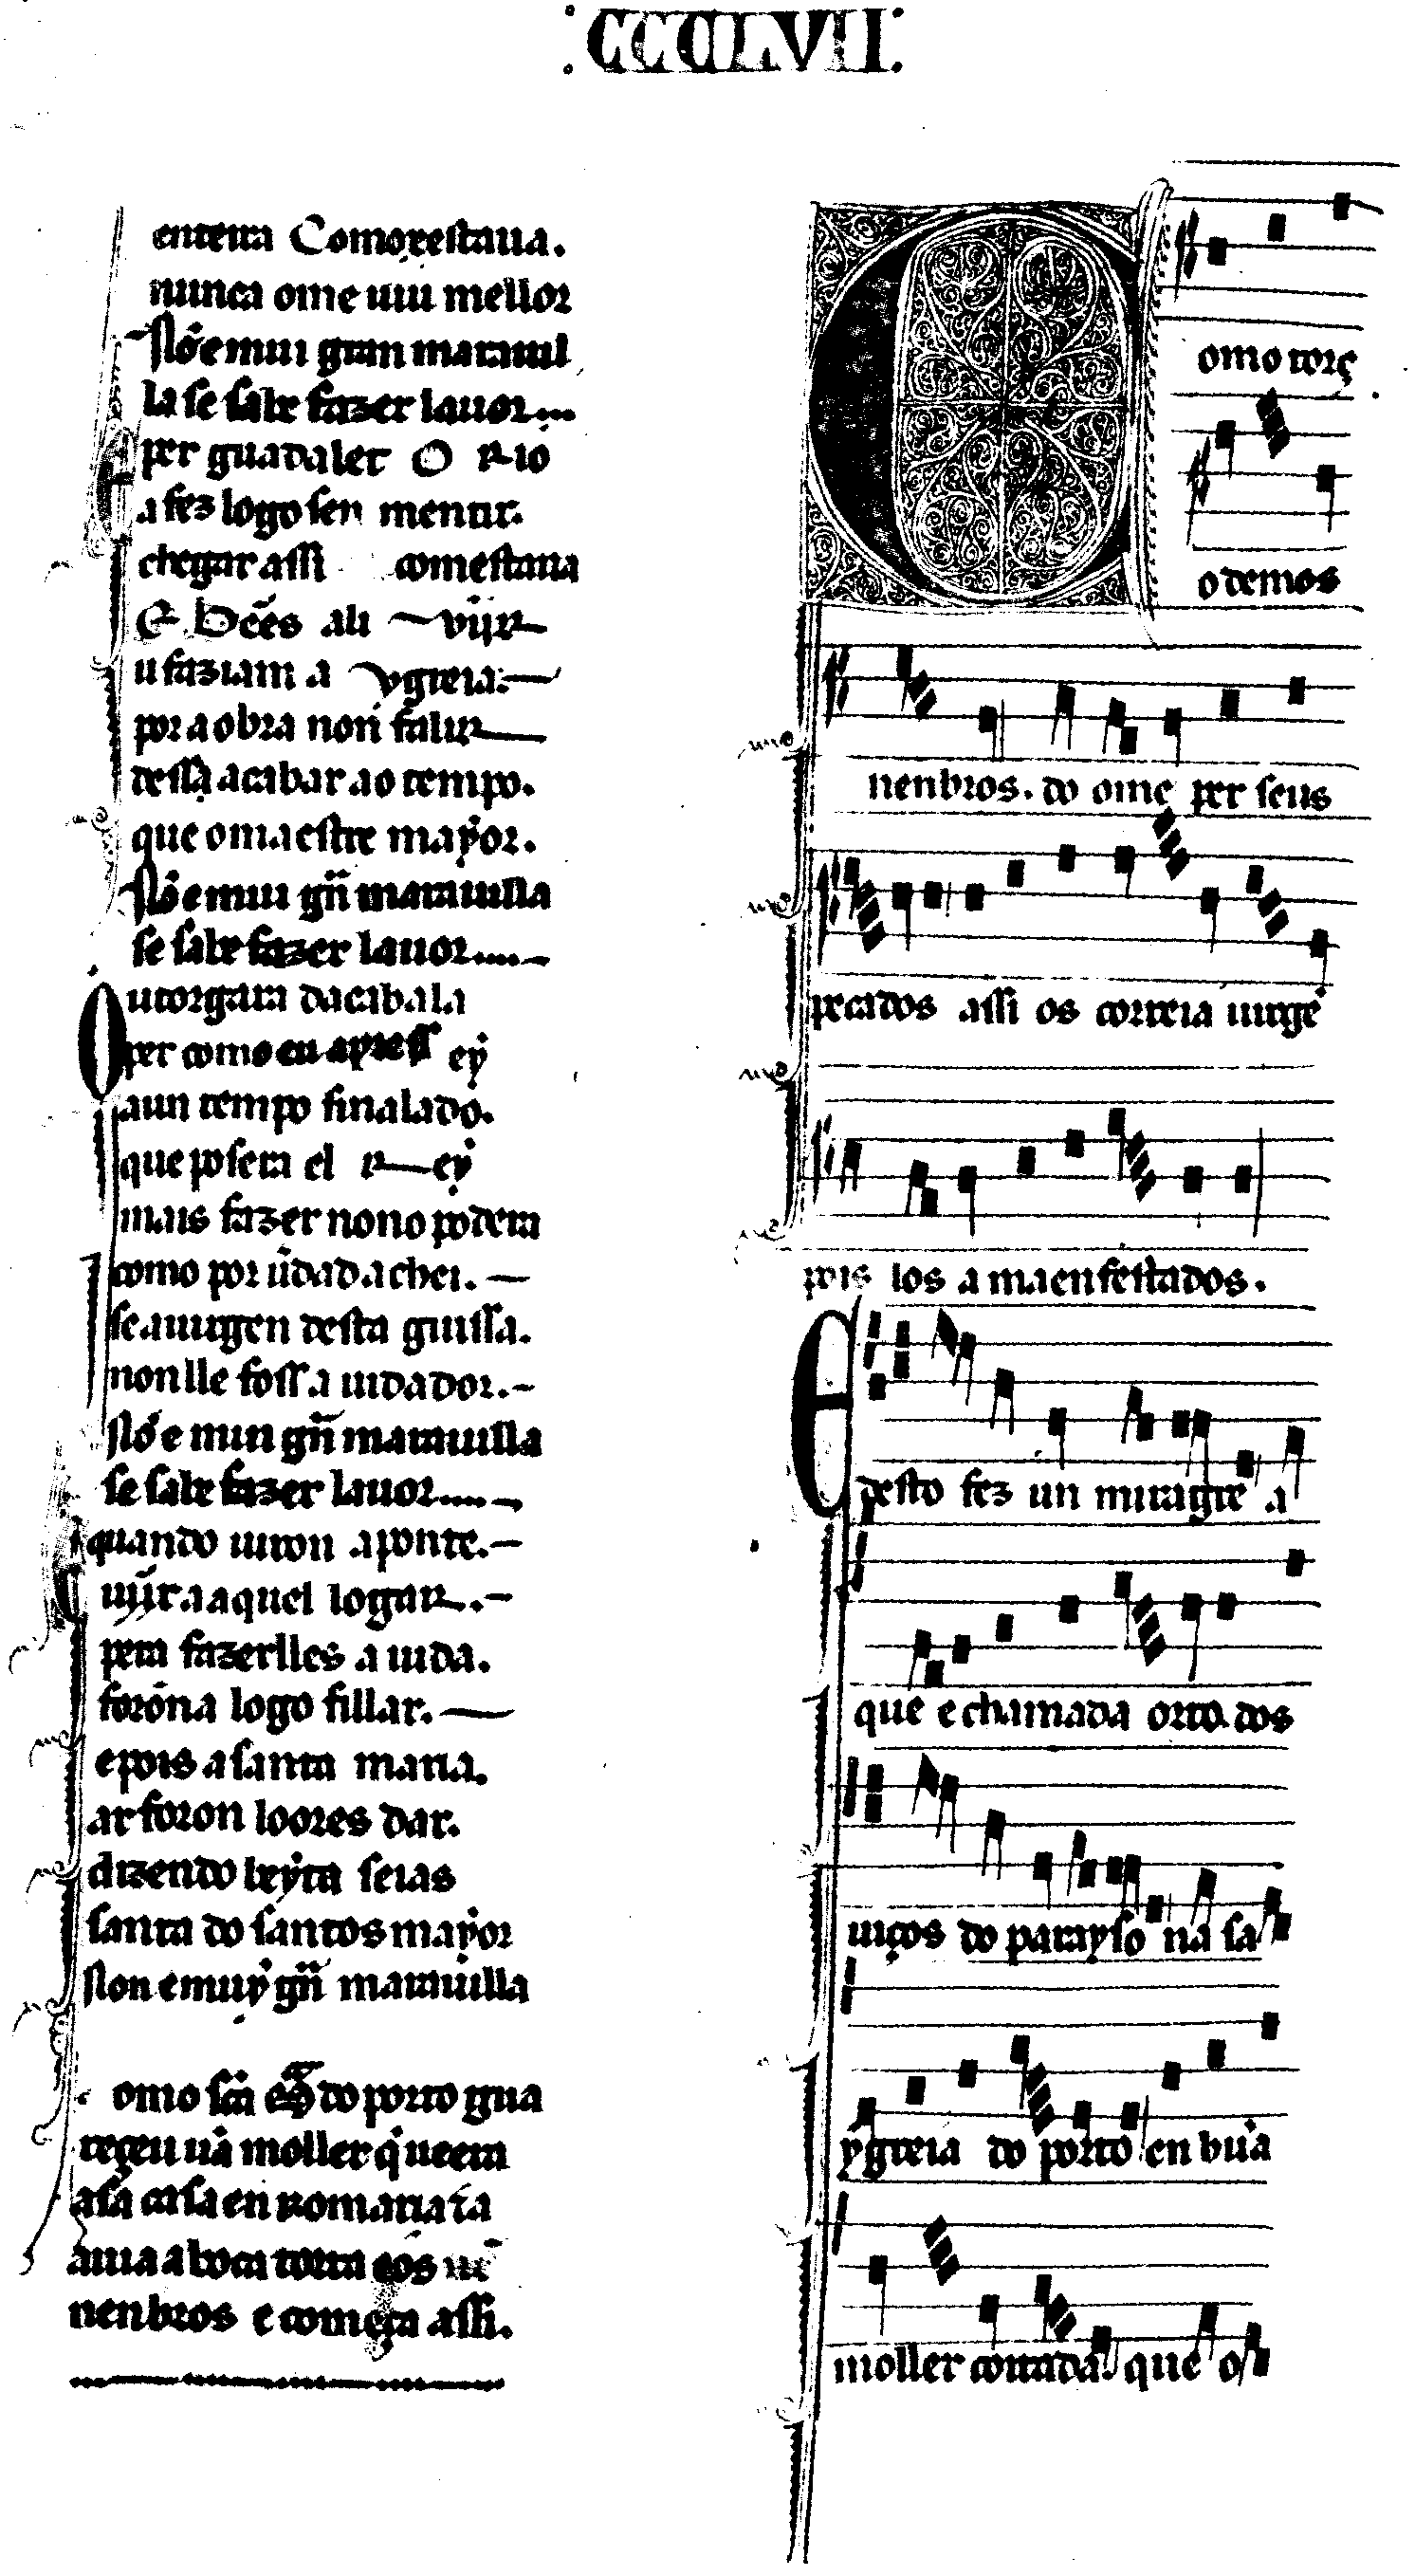 .CCCLVII.
enteira Comorestaua.
nunca ome uiu mellor
Nō e mui gran marauil
la se sabe fazer lauor...
per guadalet O Rio
a fez logo sen mentir.
chegar assi comestaua
E Beēs ali viir
u faziam a ygreia.
por a obra non falir
dessa acabar ao tempo.
que o maestre maỹor.
Nō e mui grā marauilla
se sabe fazer lauor....
Outorgara dacabala
per como eu apress ey
a un tempo sinalado.
que posera el Rey
mais fazer nono podera
como por ūdad achei.
se a uirgen desta guissa.
non lle foss a iudador.
Nō e mui grā marauilla
se sabe fazer lauor....
E quando uiron a ponte.
uijr a aquel logar.
pera fazerlles a iuda.
forōna logo fillar.
e pois a santa maria.
ar foron loores dar.
dizendo beyta seias
santa do santos mayor
Non e muy grā marauilla
omo scā Mā do porto gua
reçeu uā moller q̄ ueera
a sa casa en romaria τ a
auia a boca torta eos nē
nenbros e comeca assi.
Como torç
o demos
nenbros. do ome per seus
pecados assi os corteia uirgē
pois los a maenfestados.
E desto fez un miragre a
que e chamada orto. dos
uiços do parayso na sa
ygreia do porto en būa
moller coitada. que o